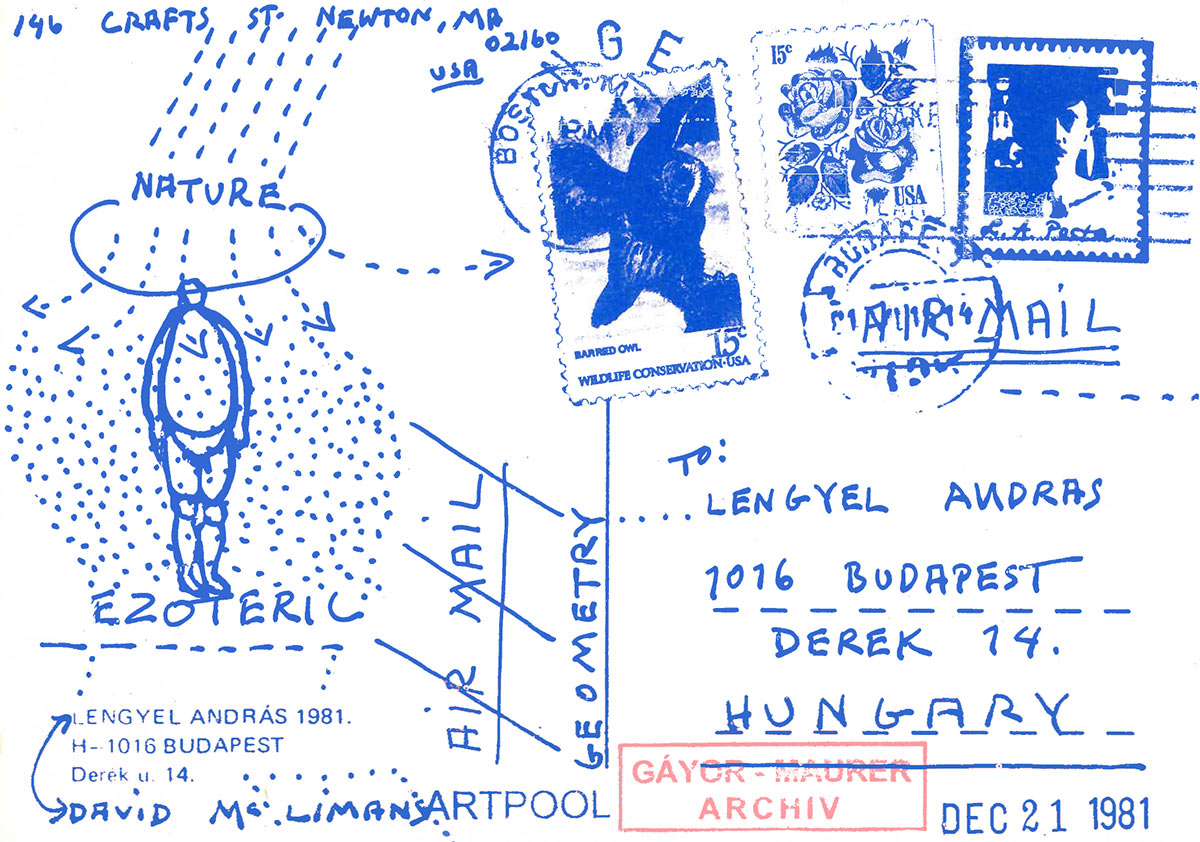 146 CRAFTS ST. NEWTON, MA
02160
USA
GE
BOSTON, MA
PM
15c
USA
L.A. Posta
BARRED OWL
15c
WILDLIFE CONSERVATION·USA
NATURE
AIR MAIL
TO:
LENGYEL ANDRAS
1016 BUDAPEST
DEREK 14.
HUNGARY
AIR MAIL
GEOMETRY
EZOTERIC
LENGYEL ANDRÁS 1981.
H-1016 BUDAPEST
Derék u. 14.
DAVID Mc LIMANS
ARTPOOL
GÁYOR - MAURER
ARCHIV
DEC 21 1981